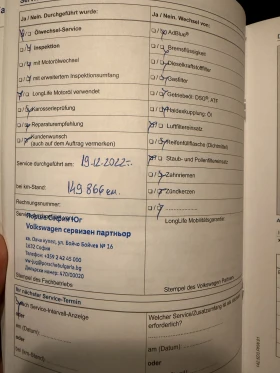 Ja / Nein. Durchgeführt wurde:
Ölwechsel-Service
Inspektion
mit Motorölwechsel
mit erweitertem Inspektionsumfang
LongLife Motoröl verwendet
Karosserieprüfung
Reparaturempfehlung
Kundenwunsch
(auch auf dem Auftrag vermerken)
Service durchgeführt am: 19.12.2022г.
bei km-Stand: 149 866 км.
Rechnungsnummer:
Порше София Юг
Volkswagen сервизен партньор
1532 София
Stempel des Fachbetriebs
Ja / Nein. Wechsel von:
AdBlue®
Bremsflüssigkeit
Dieselkraftstofffilter
Gasfilter
Getriebeöl: DSG®, ATF
Haldexkupplung: Öl
Luftfiltereinsatz
Reifenfüllflasche (Dichtmittel)
Staub- und Pollenfiltereinsatz
Zahnriemen
Zündkerzen
LongLife Mobilitätsgarantie
Stempel des Volkswagen Partners
Ihr nächster Service-Termin
nach Service-Intervall-Anzeige
am (Datum)
Welcher Service/Zusatzumfang ist
erforderlich?
am (Datum)
oder